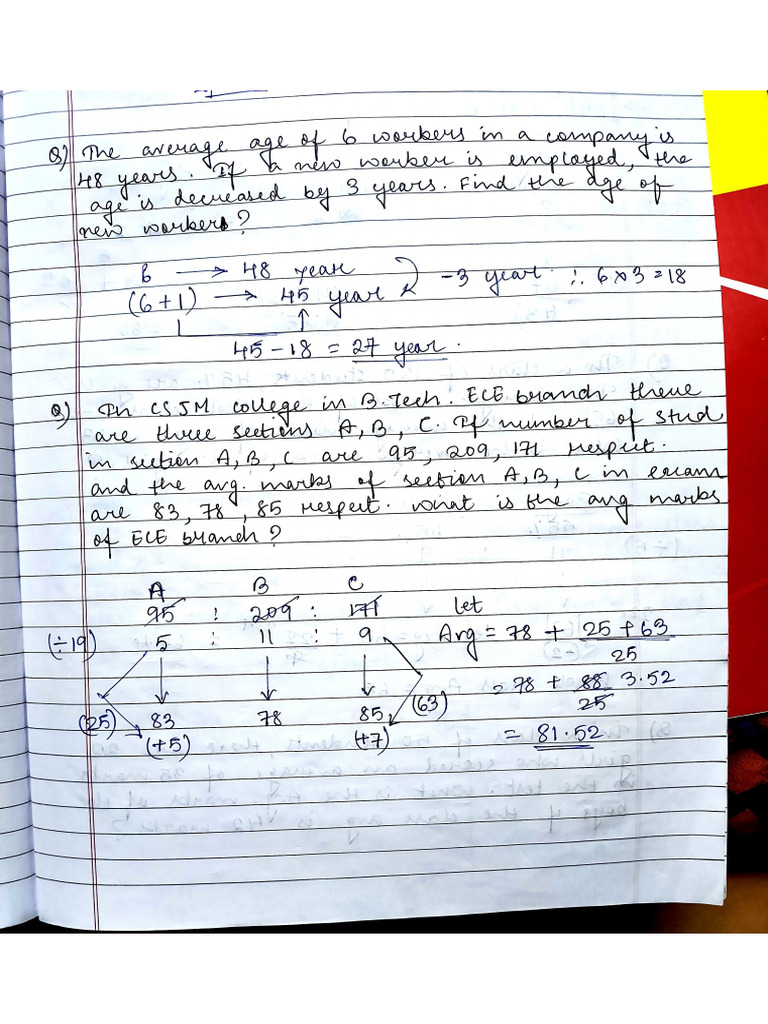 Q) The average age of 6 workers in a company is
48 years. If a new worker is employed, the
age is decreased by 3 years. Find the age of
new worker?
6 → 48 year
-3 year ∴ 6×3=18
(6+1) → 45 year
45-18 = 27 year.
Q) In CSJM college in B.Tech. ECE branch there
are three sections A, B, C. If number of stud
in section A, B, C are 95, 209, 171 respect.
and the avg. marks of section A, B, C in exam
are 83, 78, 85 respect. What is the avg marks
of ECE branch?
A B C
95 : 209 : 171 let
(÷19) 5 : 11 : 9 Avg = 78 + 25+63
25
= 78 + 88 3.52
25
(25) 83 78 85 (63)
(+5) (+7) = 81.52